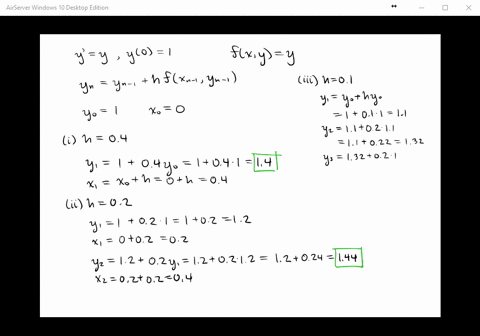 AirServer Windows 10 Desktop Edition
y' = y , y(0) = 1
f(x,y) = y
yn = yn-1 + h f(xn-1, yn-1)
y0 = 1 x0 = 0
(i) h = 0.4
y1 = 1 + 0.4 y0 = 1 + 0.4·1 = 1.4
x1 = x0 + h = 0 + h = 0.4
(ii) h = 0.2
y1 = 1 + 0.2·1 = 1 + 0.2 = 1.2
x1 = 0 + 0.2 = 0.2
y2 = 1.2 + 0.2 y1 = 1.2 + 0.2·1.2 = 1.2 + 0.24 = 1.44
x2 = 0.2 + 0.2 = 0.4
(iii) h = 0.1
y1 = y0 + h y0
= 1 + 0.1·1 = 1.1
y2 = 1.1 + 0.2·1.1
= 1.1 + 0.22 = 1.32
y3 = 1.32 + 0.2·1